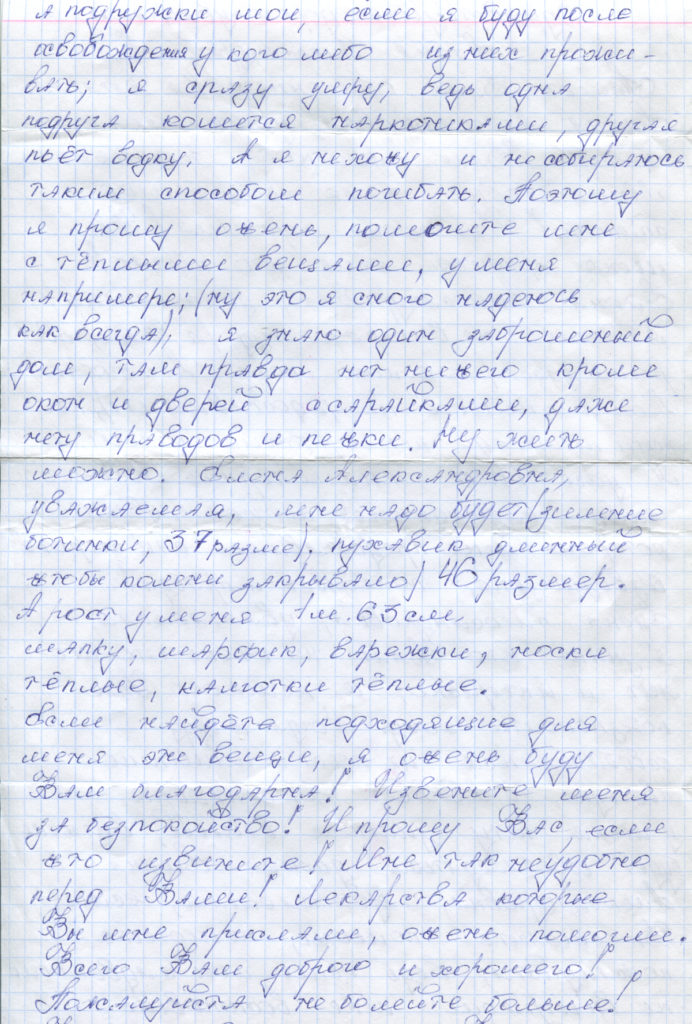 А подружки мои, если я буду после
освобождения у кого либо из них прожи-
вать; я сразу умру, ведь одна
подруга колется наркотиками, другая
пьёт водку. А я нехочу и несобираюсь
таким способом погибать. Поэтому
я прошу очень, помогите мне
с тёплыми вещами, у меня
например; (ну это я много надеюсь
как всегда), я знаю один заброшеный
дом, там правда нет ничего кроме
окон и дверей с сарайками, даже
нету праводов и печки. Ну жить
можно. Елена Александровна,
уважаемая, мне надо будет (зимние
ботинки, 37 разме). пухавик длинный
чтобы колени закрывало) 46 размер.
А рост у меня 1м. 63 см,
шапку, шарфик, варежки, носки
тёплые, калготки тёплые.
Если найдёте подходящие для
меня эти вещи, я очень буду
Вам благодарна! Извените меня
за безпокойство! И прошу Вас, если
что извините! Мне так неудобно
перед Вами! Лекарства которые
Вы мне прислали, очень помогли.
Всего Вам доброго и хорошего!
Пожалуйста не болейте больше!